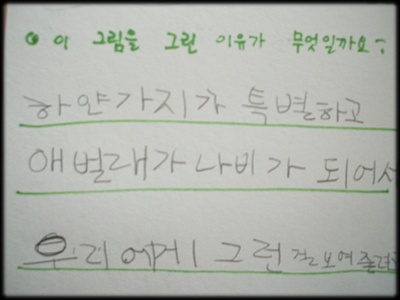 이 그림을 그린 이유가 무엇일까요?
하얀가지가 특별하고
애벌래가 나비가 되어서
우리에게 그런걸 보여줄려